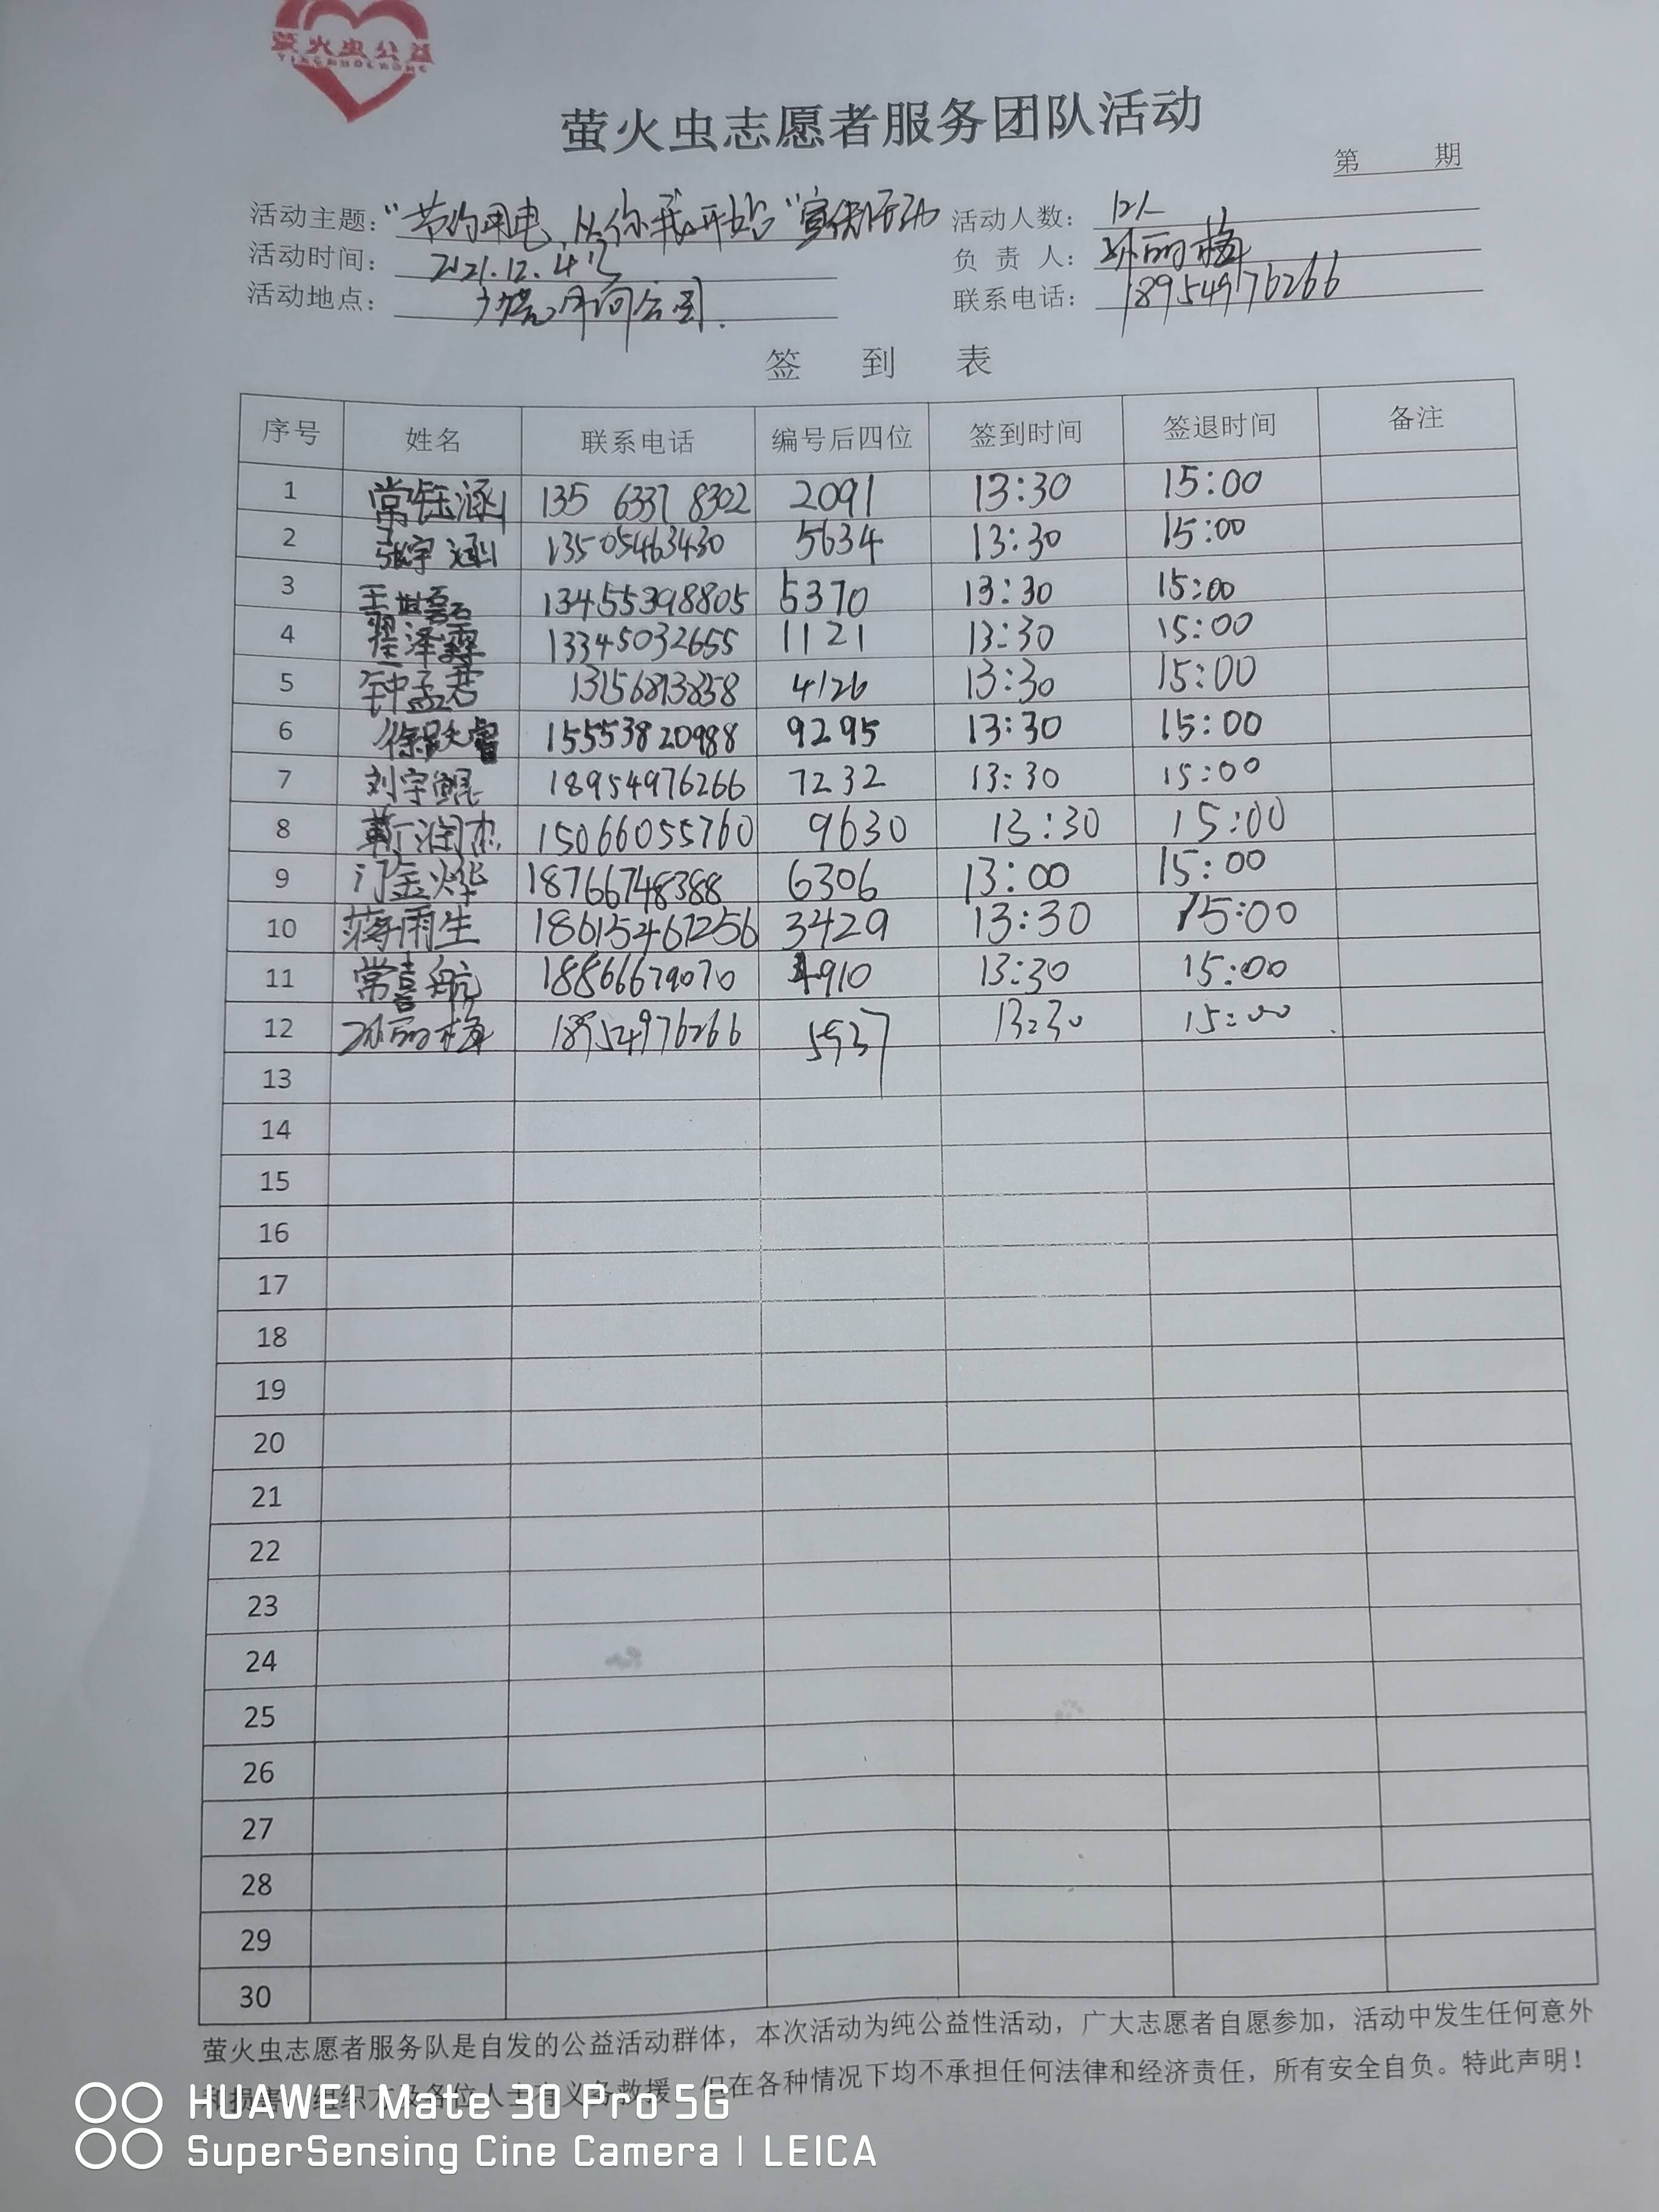 萤火虫公益
YINGHUOCHONG
萤火虫志愿者服务团队活动
第 期
活动主题:"节约用电,从你我开始"宣传活动 活动人数: 12人
活动时间: 2021.12.4 负责人: 孙丽梅
活动地点: 公园. 联系电话: 18954976266
签到表
序号 姓名 联系电话 编号后四位 签到时间 签退时间 备注
1 常钰涵 135 6337 8302 2091 13:30 15:00
2 张宇涵 13505463430 5634 13:30 15:00
3 王 13455398805 5370 13:30 15:00
4 翟泽霖 13345032655 1121 13:30 15:00
5 钟孟君 13156813858 4126 13:30 15:00
6 徐 睿 15553820988 9295 13:30 15:00
7 刘宇鲲 18954976266 7232 13:30 15:00
8 靳润杰 15066055760 9630 13:30 15:00
9 门金烨 18766748388 6306 13:00 15:00
10 蒋雨生 18615467256 3429 13:30 15:00
11 常喜航 18866679070 4910 13:30 15:00
12 孙丽梅 18954976266 5937 13:30 15:00
13
14
15
16
17
18
19
20
21
22
23
24
25
26
27
28
29
30
萤火虫志愿者服务队是自发的公益活动群体，本次活动为纯公益性活动，广大志愿者自愿参加，活动中发生任何意外
和损害，组织方及各位人士有义务救援，但在各种情况下均不承担任何法律和经济责任，所有安全自负。特此声明！
HUAWEI Mate 30 Pro 5G
SuperSensing Cine Camera | LEICA